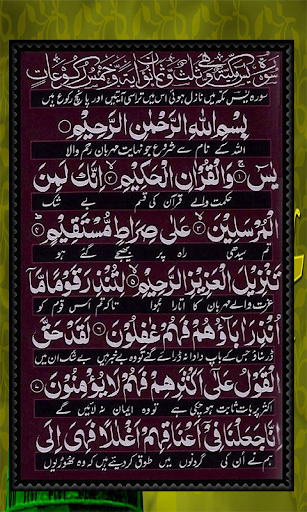 سورۃ یٰس مکیۃ وھی ثلث وثمانون آیۃ وخمس رکوعات
سورہ یٰس مکہ میں نازل ہوئی اس میں تراسی آیتیں اور پانچ رکوع ہیں
بِسْمِ اللهِ الرَّحْمٰنِ الرَّحِيْمِ
اللہ کے نام سے شروع جو نہایت مہربان رحم والا
يٰسٓ ۝١ وَالْقُرْاٰنِ الْحَكِيْمِ ۝٢ اِنَّكَ لَمِنَ
حکمت والے قرآن کی قسم بے شک
الْمُرْسَلِيْنَ ۝٣ عَلٰى صِرَاطٍ مُّسْتَقِيْمٍ ۝٤
تم سیدھی راہ پر بھیجے گئے ہو
تَنْزِيْلَ الْعَزِيْزِ الرَّحِيْمِ ۝٥ لِتُنْذِرَ قَوْمًا مَّآ
عزت والے مہربان کا اتارا ہوا تاکہ تم اس قوم کو
اُنْذِرَ اٰبَآؤُهُمْ فَهُمْ غٰفِلُوْنَ ۝٦ لَقَدْ حَقَّ
ڈر سناؤ جس کے باپ دادا نہ ڈرائے گئے تو وہ بے خبر ہیں بے شک ان میں
الْقَوْلُ عَلٰٓى اَكْثَرِهِمْ فَهُمْ لَا يُؤْمِنُوْنَ ۝٧
اکثر پر بات ثابت ہو چکی ہے تو وہ ایمان نہ لائیں گے
اِنَّا جَعَلْنَا فِيْٓ اَعْنَاقِهِمْ اَغْلٰلًا فَهِيَ اِلَى
ہم نے ان کی گردنوں میں طوق کر دیئے ہیں کہ وہ ٹھوڑیوں